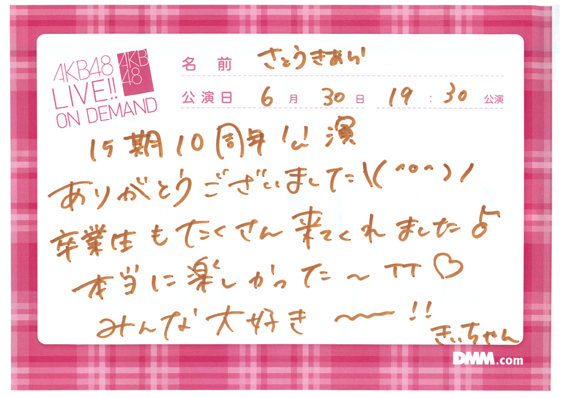 AKB48
LIVE!!
ON DEMAND
AKB
48
名前 さとうきあら
公演日 6月30日 19:30公演
15期10周年公演
ありがとうございました\(^o^)/
卒業生もたくさん来てくれました♪
本当に楽しかった〜TT♡
みんな大好き〜!!
きぃちゃん
DMM.com